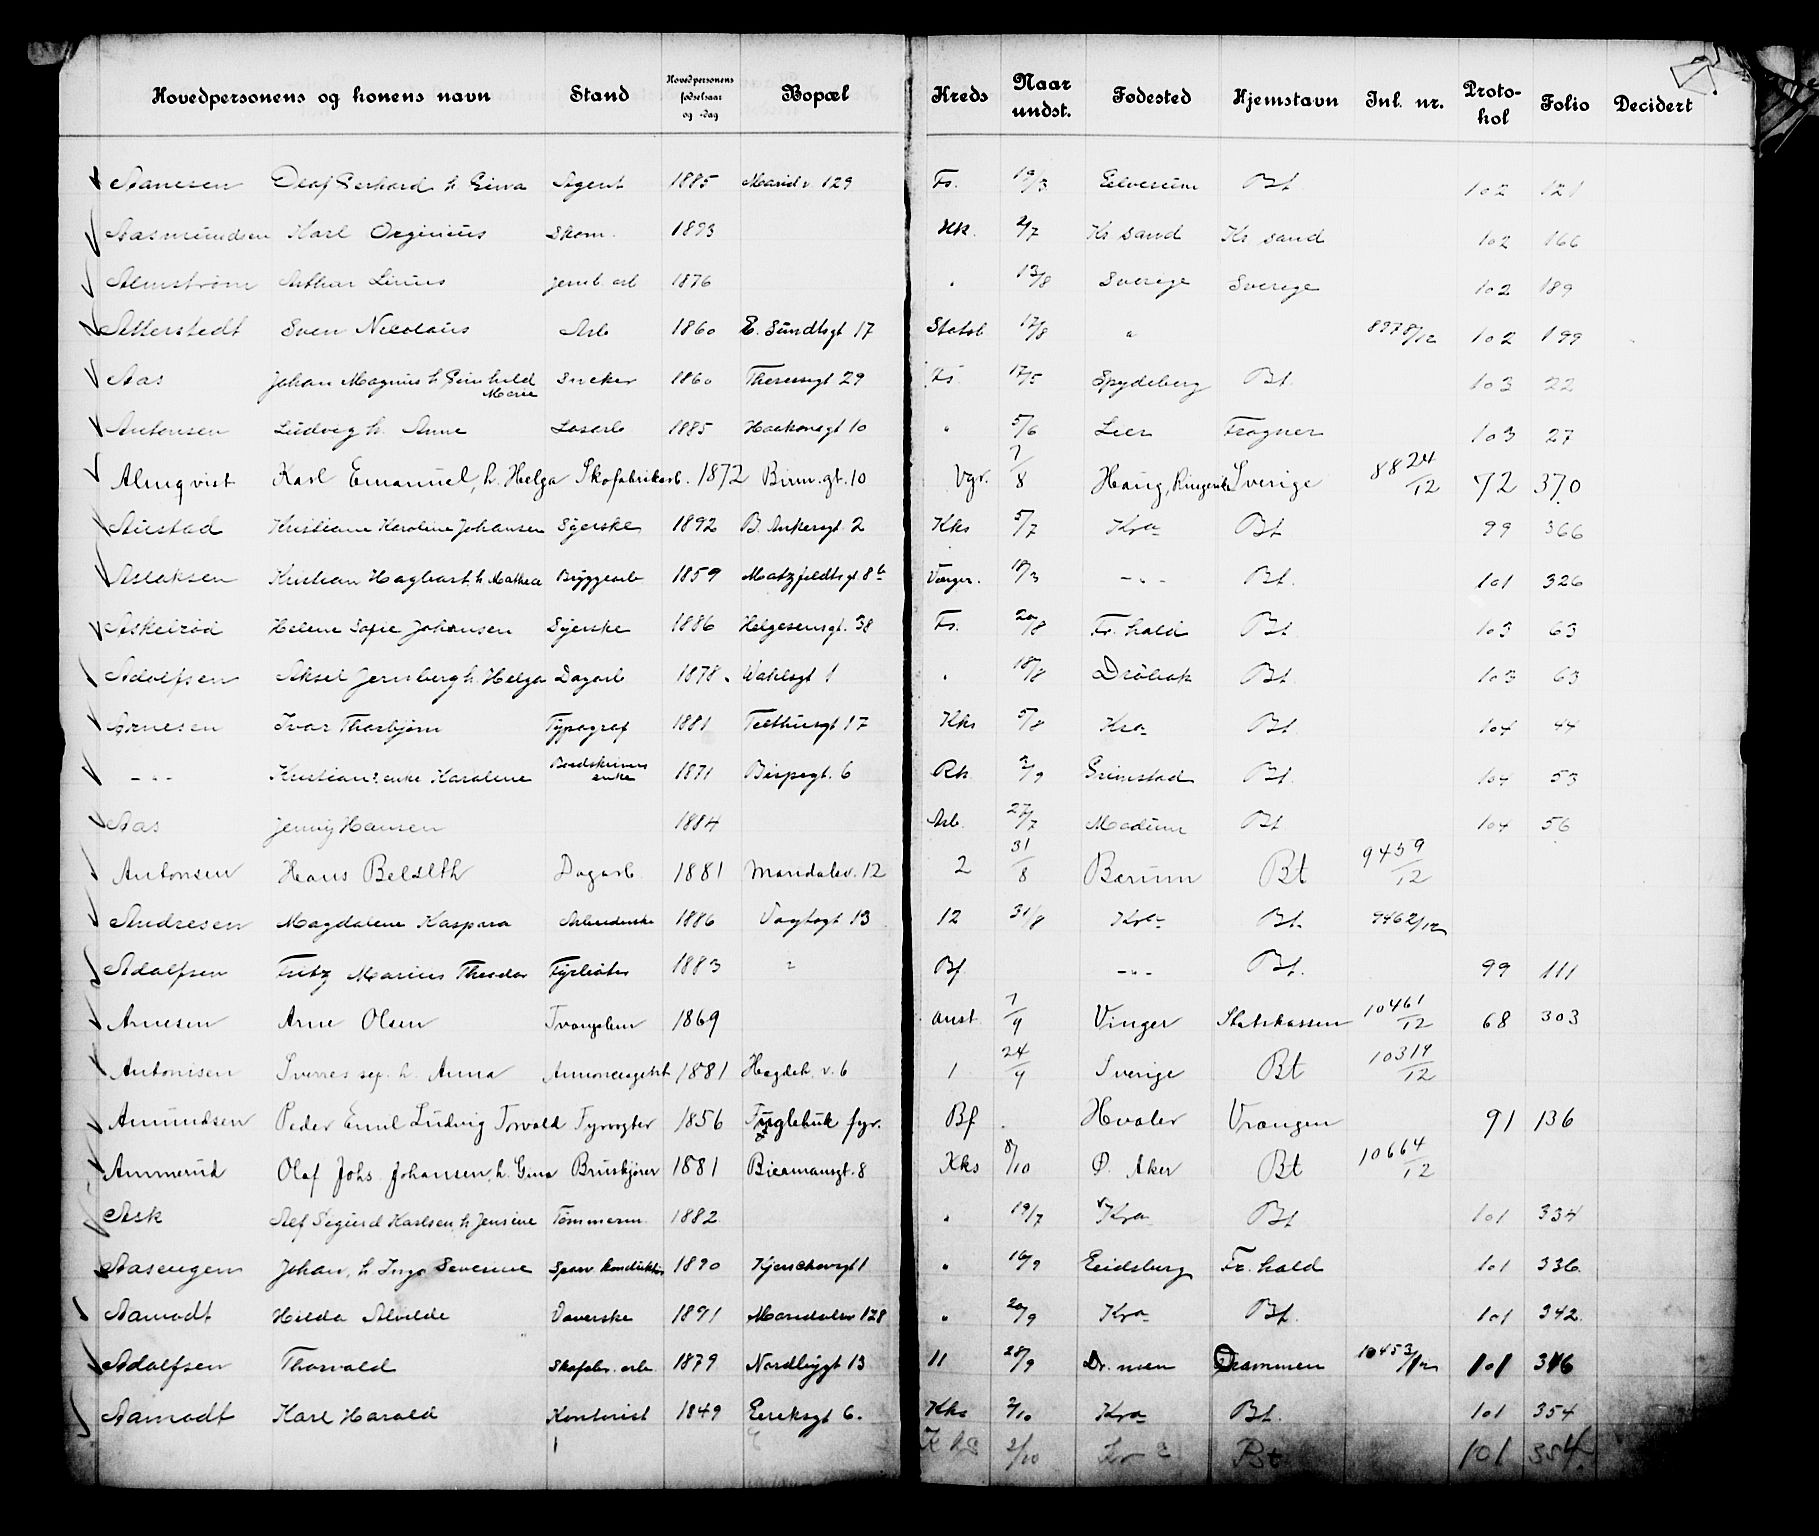 Hovedpersonens og konens navn Stand Hovedpersonens fødselsaar og -dag Bopæl Kreds Naar undst. Fødested Hjemstavn Inl. nr. Protokol Folio Decidert
Aanesen Olaf Gerhard h. Ginva Agent 1885 Marid v. 129 Fs. 19/3 Elverum Bt. 102 121
Aasmundsen Karl Orginius Skom. 1893 Hk. 2/7 Kr sand Kr sand 102 166
Almstrøm Arthur Linus jernb. arb 1876 " 13/8 Sverige Sverige 102 189
Atterstedt Sven Nicolaus Arb 1860 E. Sundtsgt 17 Statsb 17/8 " 8978/12 102 199
Aas Johan Magnus h. Gunhild Marie Sneker 1860 Theresegt 29 Fs. 17/5 Spydeberg Bt. 103 22
Antonsen Ludvig h. Anne Løsarb 1885 Haakonsgt 10 " 5/6 Lier Frogner 103 27
Almqvist Karl Emanuel, h. Helga Skofabrikarb. 1872 Birm.gt. 10 Vgr. 7/8 Haug, Ringerike Sverige 8824/12 72 370
Austad Kristiane Karoline Johansen Syerske 1892 B. Ankersgt. 2 Kks 5/7 Kra Bt 99 366
Aslaksen Kristian Hagbart h. Mathea Bryggearb 1859 Motzfeldtsgt 8b Værger. 18/3 -"- Bt. 101 326
Askelrød Helene Sofie Johansen Syerske 1886 Helgesensgt. 38 Fs. 20/8 Fr. hald Bt 103 63
Adolfsen Aksel Jernsberg h. Helga Dagarb 1878 Wahlsgt 1 " 18/8 Drøbak Bt. 103 63
Arnesen Ivar Thorbjørn Typograf 1881 Telthusgt 17 Kks 5/8 Kra Bt 104 44
-"- Kristian's enke Karoline Bordskriverenke 1871 Bispegt. 6 Rk 2/9 Grimstad Bt. 104 53
Aas Jenny Hansen 1884 Arb. 27/7 Modum Bt 104 56
Antonsen Hans Dagarb. 1881 Maridalsv. 12 2 31/8 Bærum Bt 9459/12
Andresen Magdalene Kaspara Arbeiderske 1886 Vogtsgt 13 12 31/8 Kra Bt. 9462/12
Adolfsen Fritz Marius Theodor Fyrbøter 1883 " Bf -"- Bt. 99 111
Arnesen Arne Olsen Tvangslem 1869 anst. 7/9 Vinger Statskassen 10461/12 68 303
Antonisen Sverres sep. h. Anna Annonceagent 1881 Hegdeh. v. 6 1 24/9 Sverige Bt 10319/12
Amundsen Peder Emil Ludvig Torvald Fyrvogter 1856 Fuglehuk fyr. Bf. Hvaler Vrangen 91 136
Ammerud Olaf Johs. Johansen, h. Gina Bruskjører 1881 Biermansgt. 8 Kks 8/10 Ø. Aker Bt 10664/12
Ask Alf Sigurd Karlsen h. Jensine Tømmerm. 1882 " 19/7 Kra Bt 101 334
Aasengen Johan, h. Inga Severine Sporv. konduktør 1890 " 16/9 Eidsberg Fr. hald 101 336
Aamodt Hilda Alvilde Væverske 1891 Maridalsv 128 " 20/9 Kra Bt. 101 342
Adolfsen Thorvald Skofabr. arb 1879 Nordbygt 13 11 28/9 Dr. men Drammen 10453/12 101 346
Aamodt Karl Harald Kontorist 1849 Eeriksgt 6. Kks 2/10 Kra Bt. 101 354
Kks 2/10 Kr a Bt 101 354.